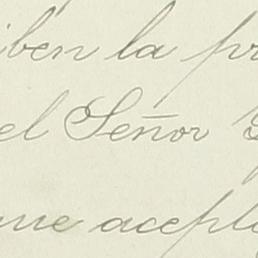 iben la pr
el Señor
me acepta